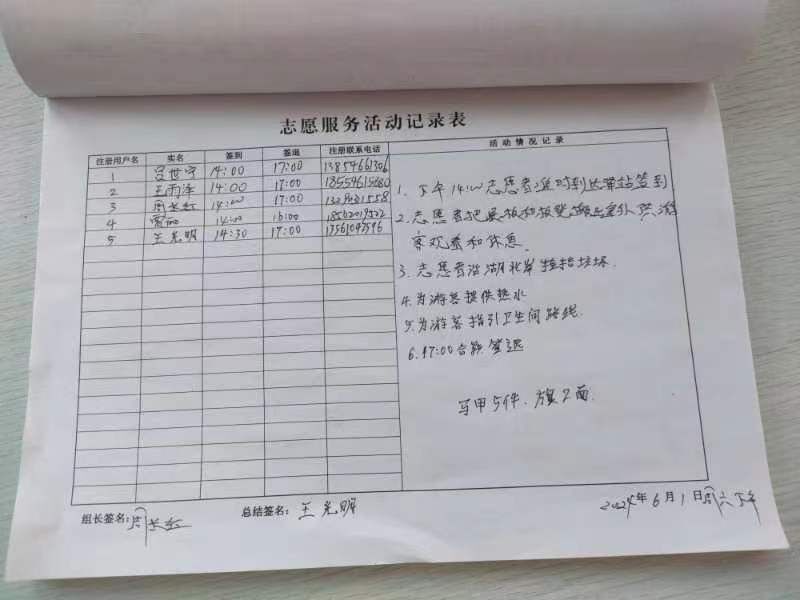 志愿服务活动记录表
注册用户名 实名 签到 签退 注册联系电话
1 14:00 17:00
2 王雨泽 14:00 17:00
3 周长虹 14:00 17:00
4 14:00 16:00
5 王光明 14:30 17:00
活动情况记录
1、下午14:00志愿者准时到达驿站签到
2、志愿者把展板和板凳搬运室外供游
客观看和休息
3、志愿者沿湖北岸捡拾垃圾
4、为游客提供热水
5、为游客指引卫生间路线
6、17:00合影签退
马甲5件、旗2面
组长签名:周长虹
总结签名:王光明
2024年6月1日周六下午